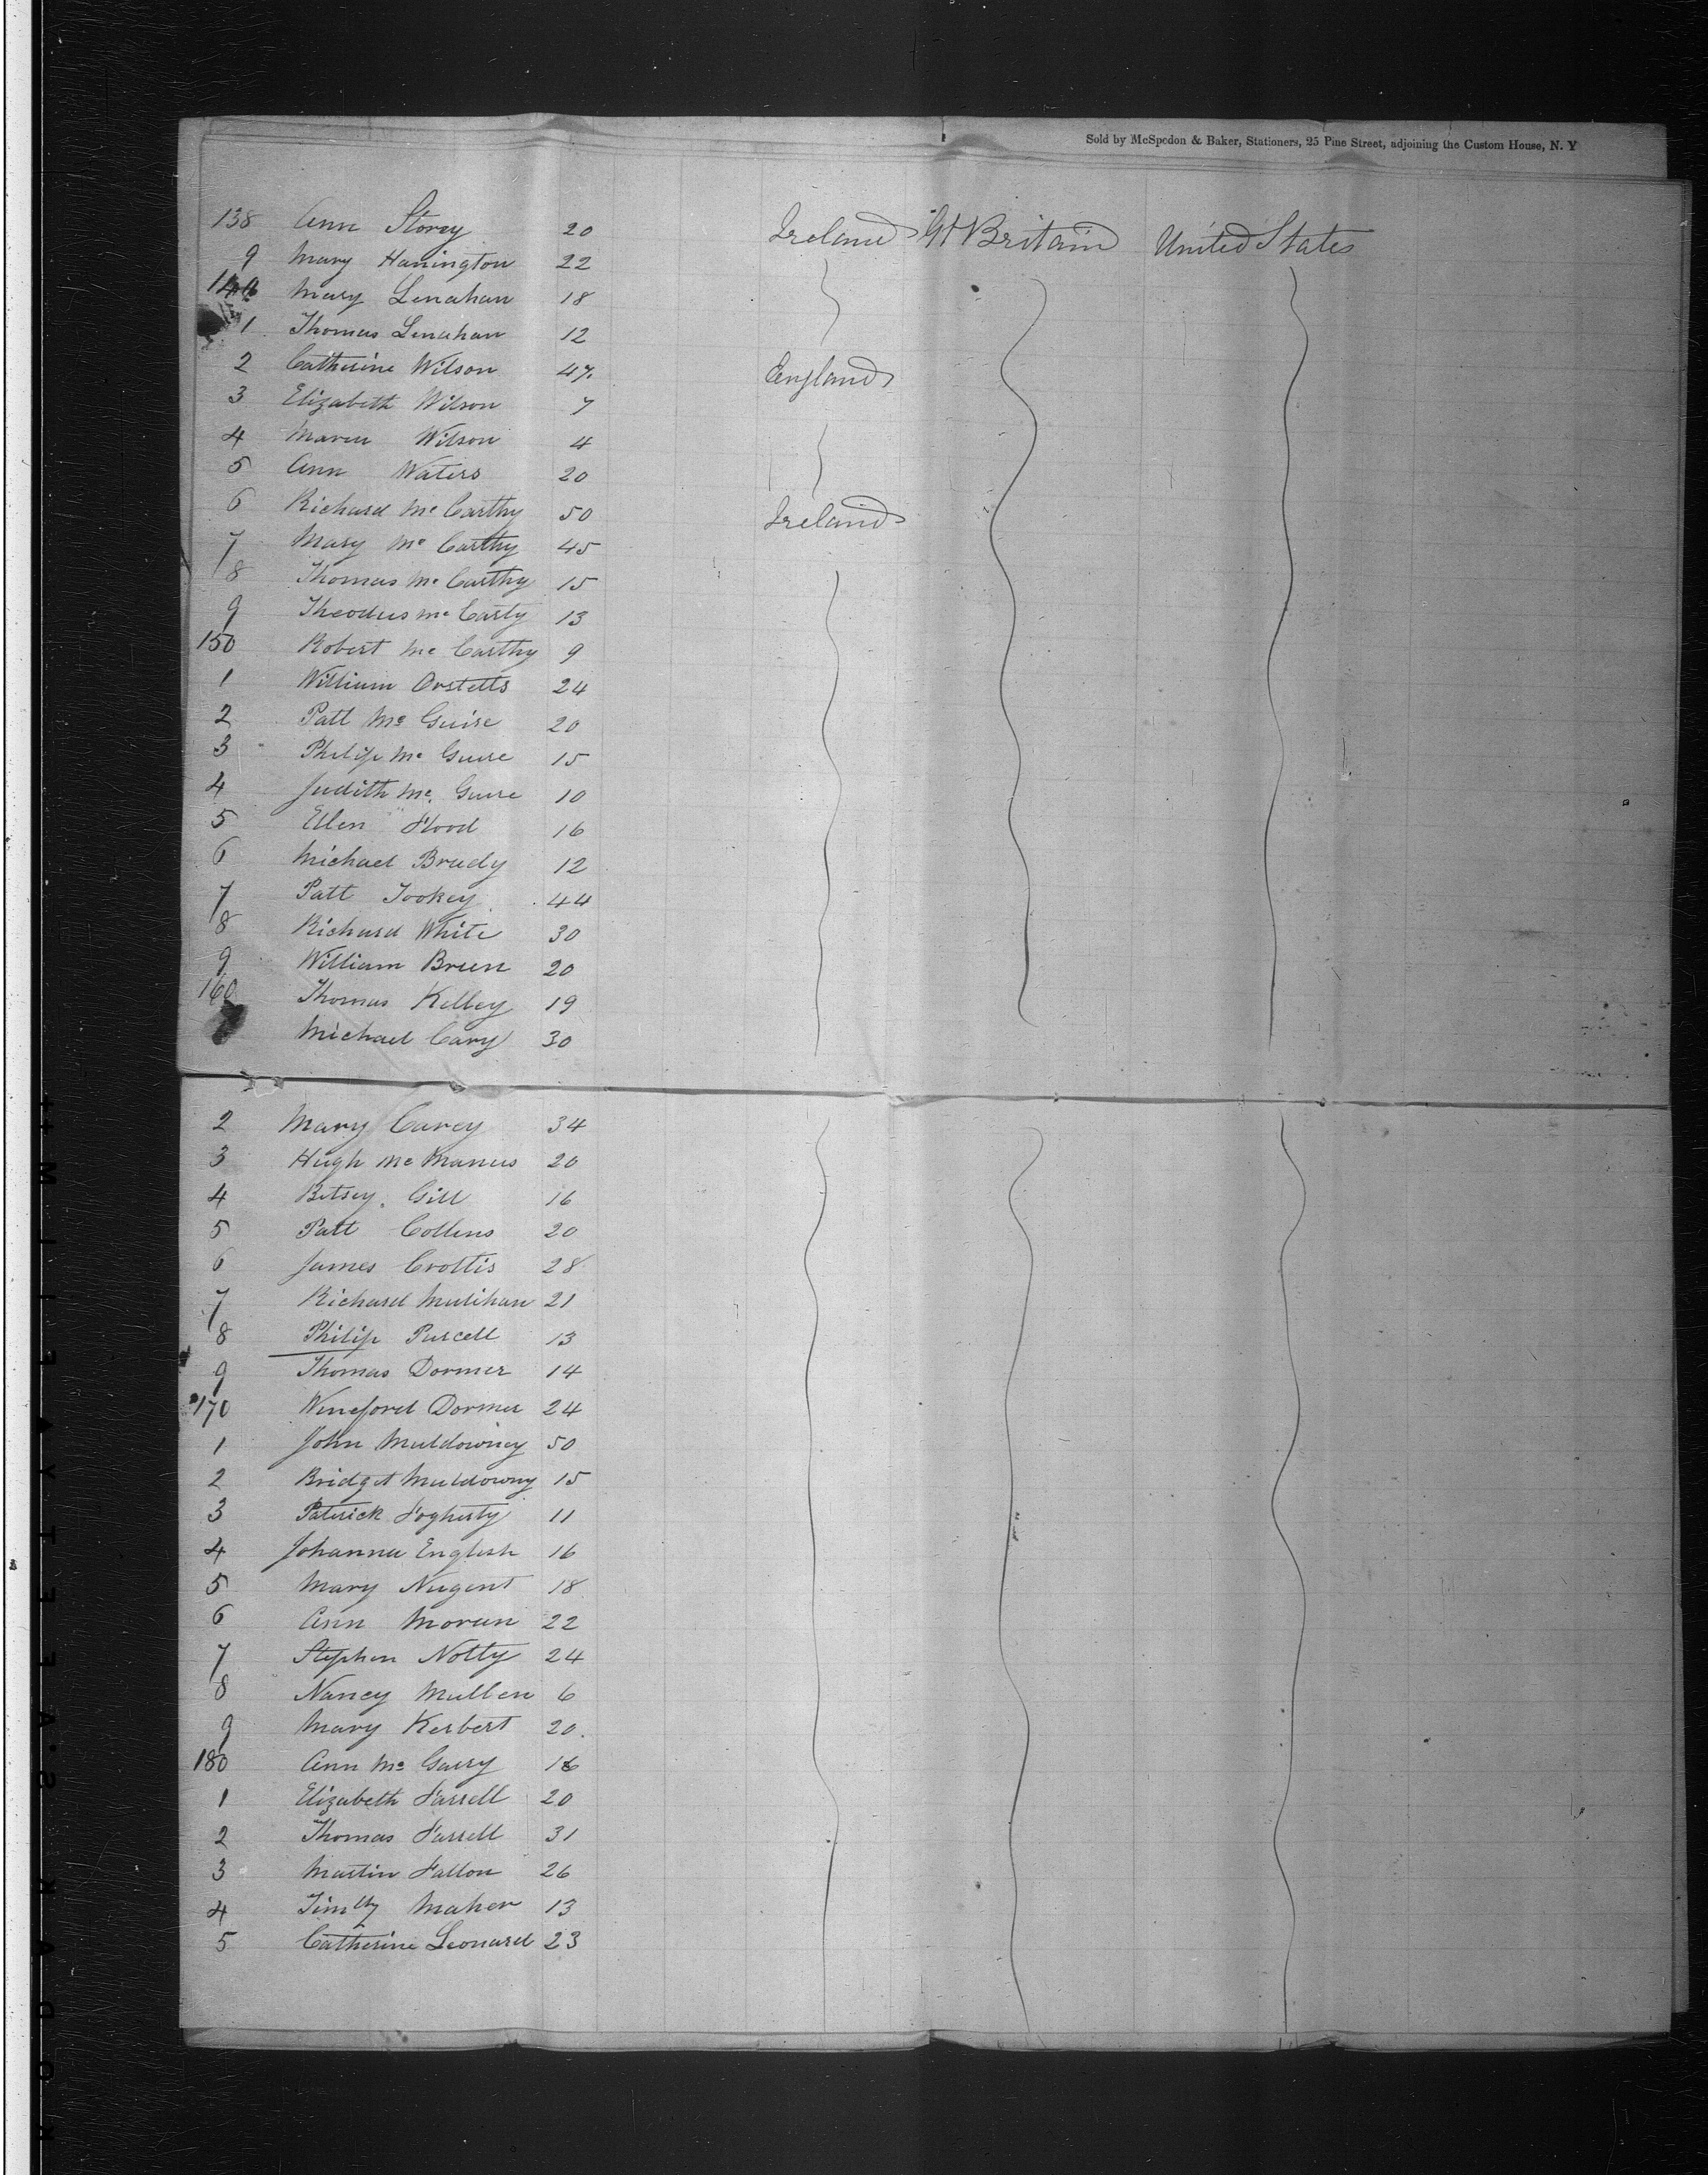 Sold by McSpedon & Baker, Stationers, 25 Pine Street, adjoining the Custom House, N. Y
138 Ann Storey 20 Ireland Gt Britain United States
9 Mary Hanington 22
140 Mary Lenahan 18
1 Thomas Lenahan 12
2 Catherine Wilson 47. England
3 Elizabeth Wilson 7
4 Wilson 4
5 Ann Waters 20
6 Richard Mc Carthy 50 Ireland
7 Mary Mc Carthy 45
8 Thomas Mc Carthy 15
9 Mc Carty 13
150 Robert Mc Carthy 9
1 William 24
2 Patt Mc Guire 20
3 Philip Mc Guire 15
4 Judith Mc Guire 10
5 Ellen Flood 16
6 Michael Brady 12
7 Patt Tookey 44
8 Richard White 30
9 William Breen 20
160 Thomas Kelley 19
Michael Cary 30
2 Mary Carey 34
3 Hugh Mc Manus 20
4 Betsey Gill 16
5 Patt Collins 20
6 James Crottis 28
7 Richard Mulihan 21
8 Philip Purcell 13
9 Thomas Dormer 14
170 Wineford Dormer 24
1 John Muldowney 50
2 Bridget Muldowny 15
3 Paterick Fogherty 11
4 Johanna English 16
5 Mary Nugent 18
6 Ann Moran 22
7 Stephen Notty 24
8 Nancy Mullen 6
9 Mary Kerbert 20.
180 Ann Mc Garry 16
1 Elizabeth Farrell 20
2 Thomas Farrell 31
3 Martin Fallon 26
4 Timthy Maher 13
5 Catherine Leonard 23